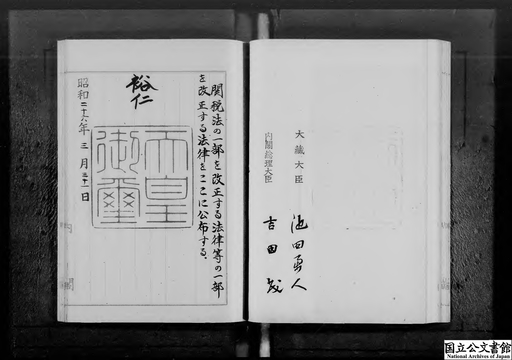 大藏大臣 池田勇人
内閣総理大臣 吉田茂
関税法の一部を改正する法律等の一部
を改正する法律をここに公布する。
裕仁
天皇
御璽
昭和二十六年三月三十一日
国立公文書館
National Archives of Japan